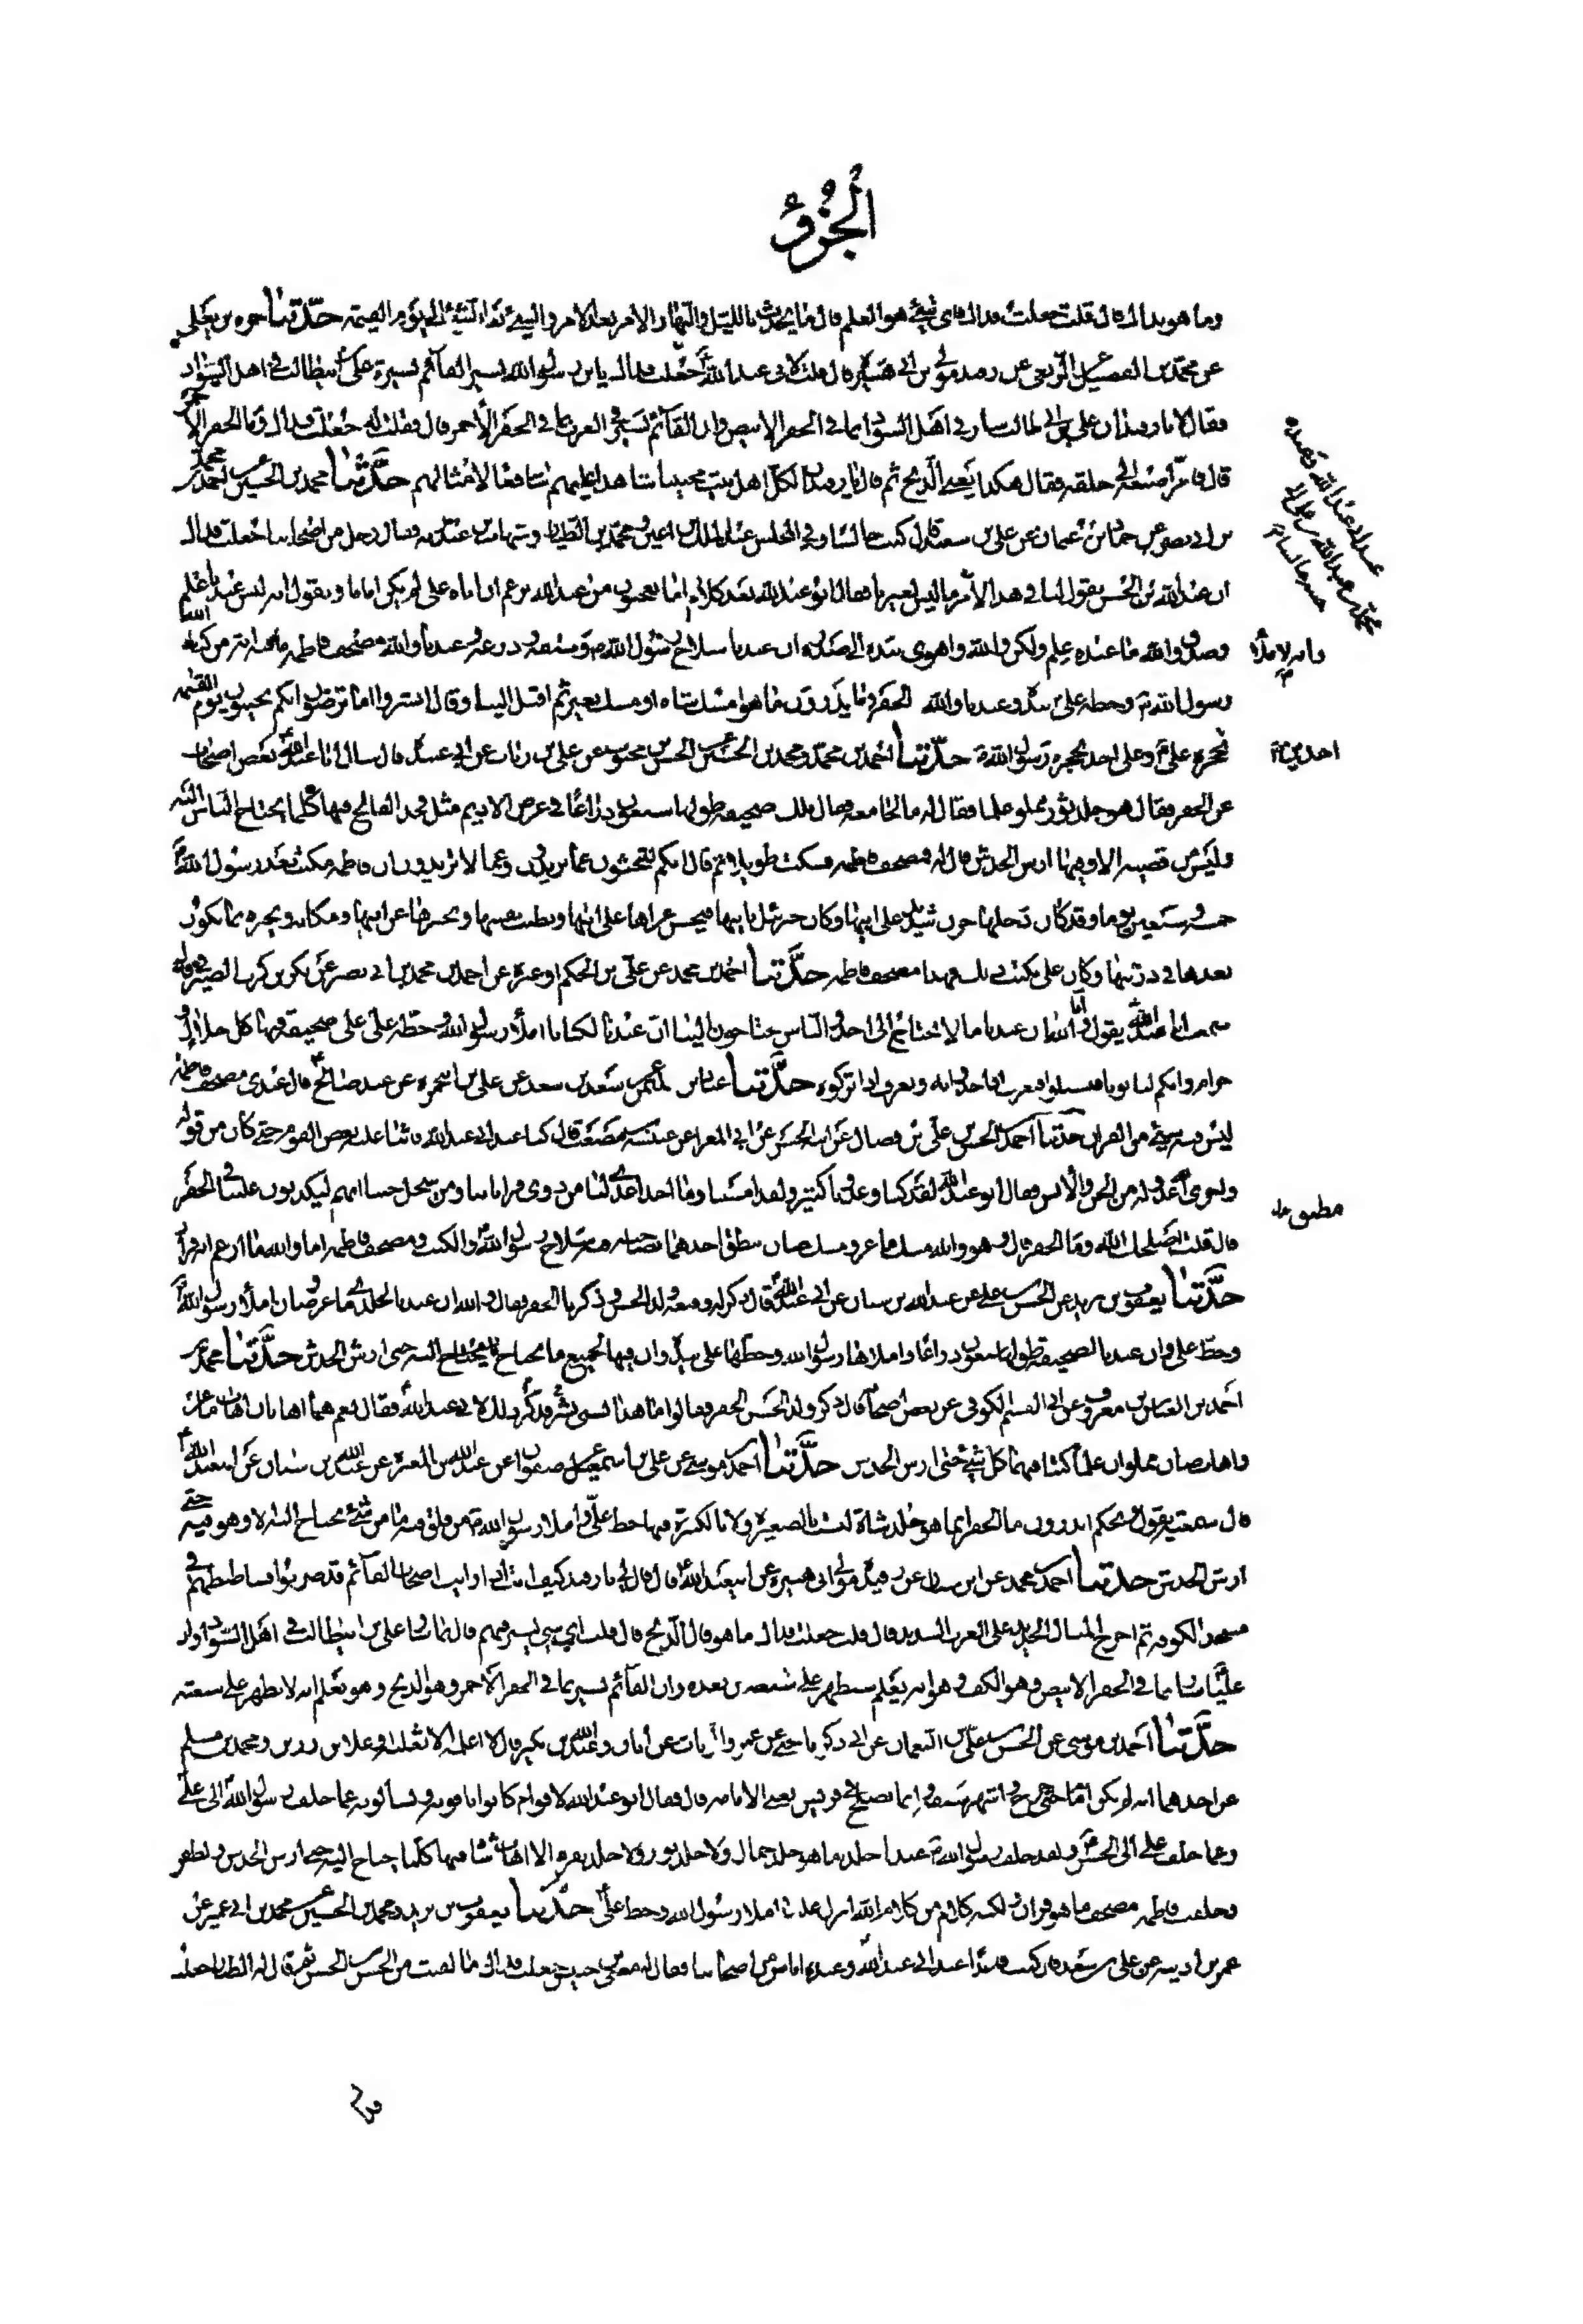 الجزؤ
وما هو بذاك قال قلت جعلت فداك فاى شئ هو العلم قال ما يحدث بالليل والنهار الامر بعد الامر والشئ بعد الشئ الى يوم القيمة حدثنا حمزه بن يعلى
عن محمد بن الفضيل الربعى عن رفيد مولى بن ابى هبيرة قال قلت لابى عبد الله جعلت فداك يابن رسول الله يسير القآئم بسيرة على بن ابيطالب فى اهل السواد
فقال لا يا رفيد ان على بن ابى طالب سار فى اهل السواد بما فى الجفر الابيض وان القآئم يسير فى العرب بما فى الجفر الأحمر قال فقلت له جعلت فداك وما الجفر الأحمر
قال فامرّ اصبعه الى حلقه فقال هكذا يعنى الذبح ثم قال يا رفيد ان لكل اهل بيت مجيبا شاهدا عليهم شافعا لامثالهم حدثنا محمد بن الحسين عن احمد بن محمد
بن ابى نصر عن حماد بن عثمان عن على بن سعد قال كنت جالسا فى المجلس عند عبد الملك بن اعين ومحمد بن الطيار وشهاب بن عبد ربه فقال رجل من اصحابنا جعلت فداك
ان عبد الله بن الحسن يقول لنا فى هذا الأمر ما ليس لغيرنا فقال ابو عبد الله بعد كلام اما تعجبون من عبد الله يزعم ان اباه على لم يكن اماما ويقول انه ليس عندنا علم
وصدق والله ما عنده علم ولكن والله واهوى بيده الى صدره ان عندنا سلاح رسول الله ص وسيفه ودرعه وعندنا والله مصحف فاطمه ما فيه اية من كتاب الله
رسول الله ص وخطه على بيده وعندنا والله الجفر وما يدرون ما هو امسك شاه او مسك بعير ثم اقبل الينا وقال ابشروا اما ترضون انكم تجيئون يوم القيمه
بحجزة على وعلى اخذ بحجزه رسول الله ص حدثنا احمد بن محمد ومحمد بن الحسين عن الحسن بن محبوب عن على بن رئاب عن ابى عبيده قال سال ابا عبد الله بعض اصحابنا
عن الجفر فقال هو جلد ثور مملو علما فقال له ما الجامعه فقال تلك صحيفه طولها سبعون ذراعا فى عرض الاديم مثل فخذ الفالج فيها كلما يحتاج الناس اليه
وليس من قضيه الا وفيها ارش الخدش قال له فمصحف فاطمه فسكت طويلا ثم قال انكم لتبحثون عما تريدون وعما لا تريدون ان فاطمه مكثت بعد رسول الله
خمسه وسبعين يوما وقد كان دخلها حزن شديد على ابيها وكان جبرئيل ياتيها فيحسن عزاها على ابيها ويطيب نفسها ويخبرها عن ابيها ومكانه ويخبرها بما يكون
بعدها فى ذريتها وكان على يكتب ذلك فهذا مصحف فاطمه حدثنا احمد بن محمد عن على بن الحكم او غيره عن احمد بن محمد بن ابى نصر عن بكر بن كرب الصيرفى قال
سمعت ابا عبد الله يقول اما والله ان عندنا ما لا نحتاج الى احد والناس يحتاجون الينا ان عندنا لكتابا املأ رسول الله وخطه على على صحيفه فيها كل حلال و
حرام وانكم لتاتونا فتسالونا فنعرف اذا اخذتم به ونعرف اذا تركتموه حدثنا عباد بن سليمن عن سعد بن سعد عن على بن ابى حمزه عن عبد صالح قال عندى مصحف فاطمه
ليس فيه شئ من القران حدثنا احمد بن الحسن بن على بن فضال عن ابيه الحسن عن ابى المغرا عن عنبسه بن مصعب قال كنا عند ابى عبد الله فاثنا عليه بعض القوم حتى كان من قوله
واخزى عدوك من الجن والأنس فقال ابو عبد الله لقد كنا وعدونا كثير ولقد امسينا وما احد اعدى لنا من ذوى قراباتنا ومن ينتحل حبنا انهم ليكذبون علينا فى الجفر
قال قلت اصلحك الله وما الجفر قال هو والله مسك ماعز ومسك ضان ينطق احدهما بصاحبه فيه سلاح رسول الله والكتب ومصحف فاطمه اما والله ما ازعم انه قران
حدثنا يعقوب بن يزيد عن الحسن بن على عن عبد الله بن سنان عن ابى عبد الله قال ذكر له وقيعه ولد الحسن وذكرنا الجفر فقال والله ان عندنا لجلدى ماعز وضان املأ رسول الله
وخط على وان عندنا لصحيفه طولها سبعون ذراعا واملاها رسول الله وخطها على بيده وان فيها لجميع ما يحتاج اليه حتى ارش الخدش حدثنا محمد بن
احمد بن العباس بن معروف عن ابى القسم الكوفى عن بعض اصحابه قال ذكر ولد الحسن الجفر فقالوا ما هذا بشئ فذكر ذلك لابى عبد الله فقال نعم هما اهابان اهاب ماعز
واهاب ضان مملوان علما كتبا فيهما كل شئ حتى ارش الخدش حدثنا احمد بن موسى عن على بن اسمعيل عن صفوان عن عبد الله بن المغيرة عن عبد الله بن سنان عن ابى عبد الله
قال سمعته يقول ويحكم اتدرون ما الجفر انما هو جلد شاة ليست بالصغيرة ولا بالكبيرة فيها خط على واملا رسول الله ص من فلق فيه ما من شئ يحتاج اليه الا وهو فيه حتى
ارش الخدش حدثنا احمد بن محمد عن ابن سنان عن رفيد مولى ابى هبيرة عن ابى عبد الله قال قال لى يا رفيد كيف انت اذا رايت اصحاب القآئم قد ضربوا فساطيطهم فى
مسجد الكوفه ثم اخرج المثال الجديد على العرب الشديد قال قلت جعلت فداك ما هو قال الذبح قال قلت باى شئ يسير فيهم قال بما سار على بن ابيطالب فى اهل السواد
عليا سار بما فى الجفر الابيض وهو الكف وهو انه يعلم سيظهر على شيعته من بعده وان القآئم يسير بما فى الجفر الأحمر وهو الذبح وهو يعلم انه لا يظهر على شيعته
حدثنا احمد بن موسى عن الحسن بن على بن النعمان عن ابى زكريا يحيى عن عمرو الزيات عن ابان وعبد الله بن بكير قال لا اعلمه الا ثعلبه وعلاء بن رزين ومحمد بن مسلم
عن احدهما انه لم يكن اماما حتى خرج واشهر سيفه انما تصلح فى قريش يعنى الامامه قال فقال ابو عبد الله لاقوام كانوا ياتونه ويسالونه عما خلف رسول الله الى على
وعما خلف على الى الحسن ولقد خلف رسول الله ص عندنا جلدا ما هو جلد جمال ولا جلد ثور ولا جلد بقره الا اهاب شاة فيها كلما يحتاج اليه حتى ارش الخدش والظفر
وخلفت فاطمه مصحفا ما هو قران لكنه كلام من كلام الله انزل عليها املا رسول الله وخط على حدثنا يعقوب بن يزيد ومحمد بن الحسين عن محمد بن ابى عمير عن
عمر بن اذينه عن على بن سعد قال كنت قاعدا عند ابى عبد الله وعنده اناس من اصحابنا فقال له معلى بن خنيس جعلت فداك ما لقيت من الحسن بن الحسن ثم قال له الطيار جعلت